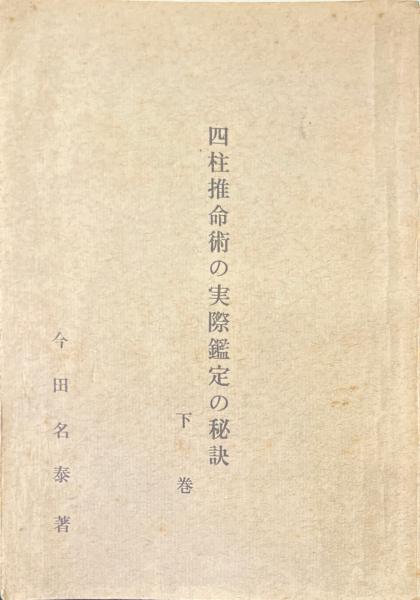 四柱推命術の実際鑑定の秘訣
下巻
今田名泰著